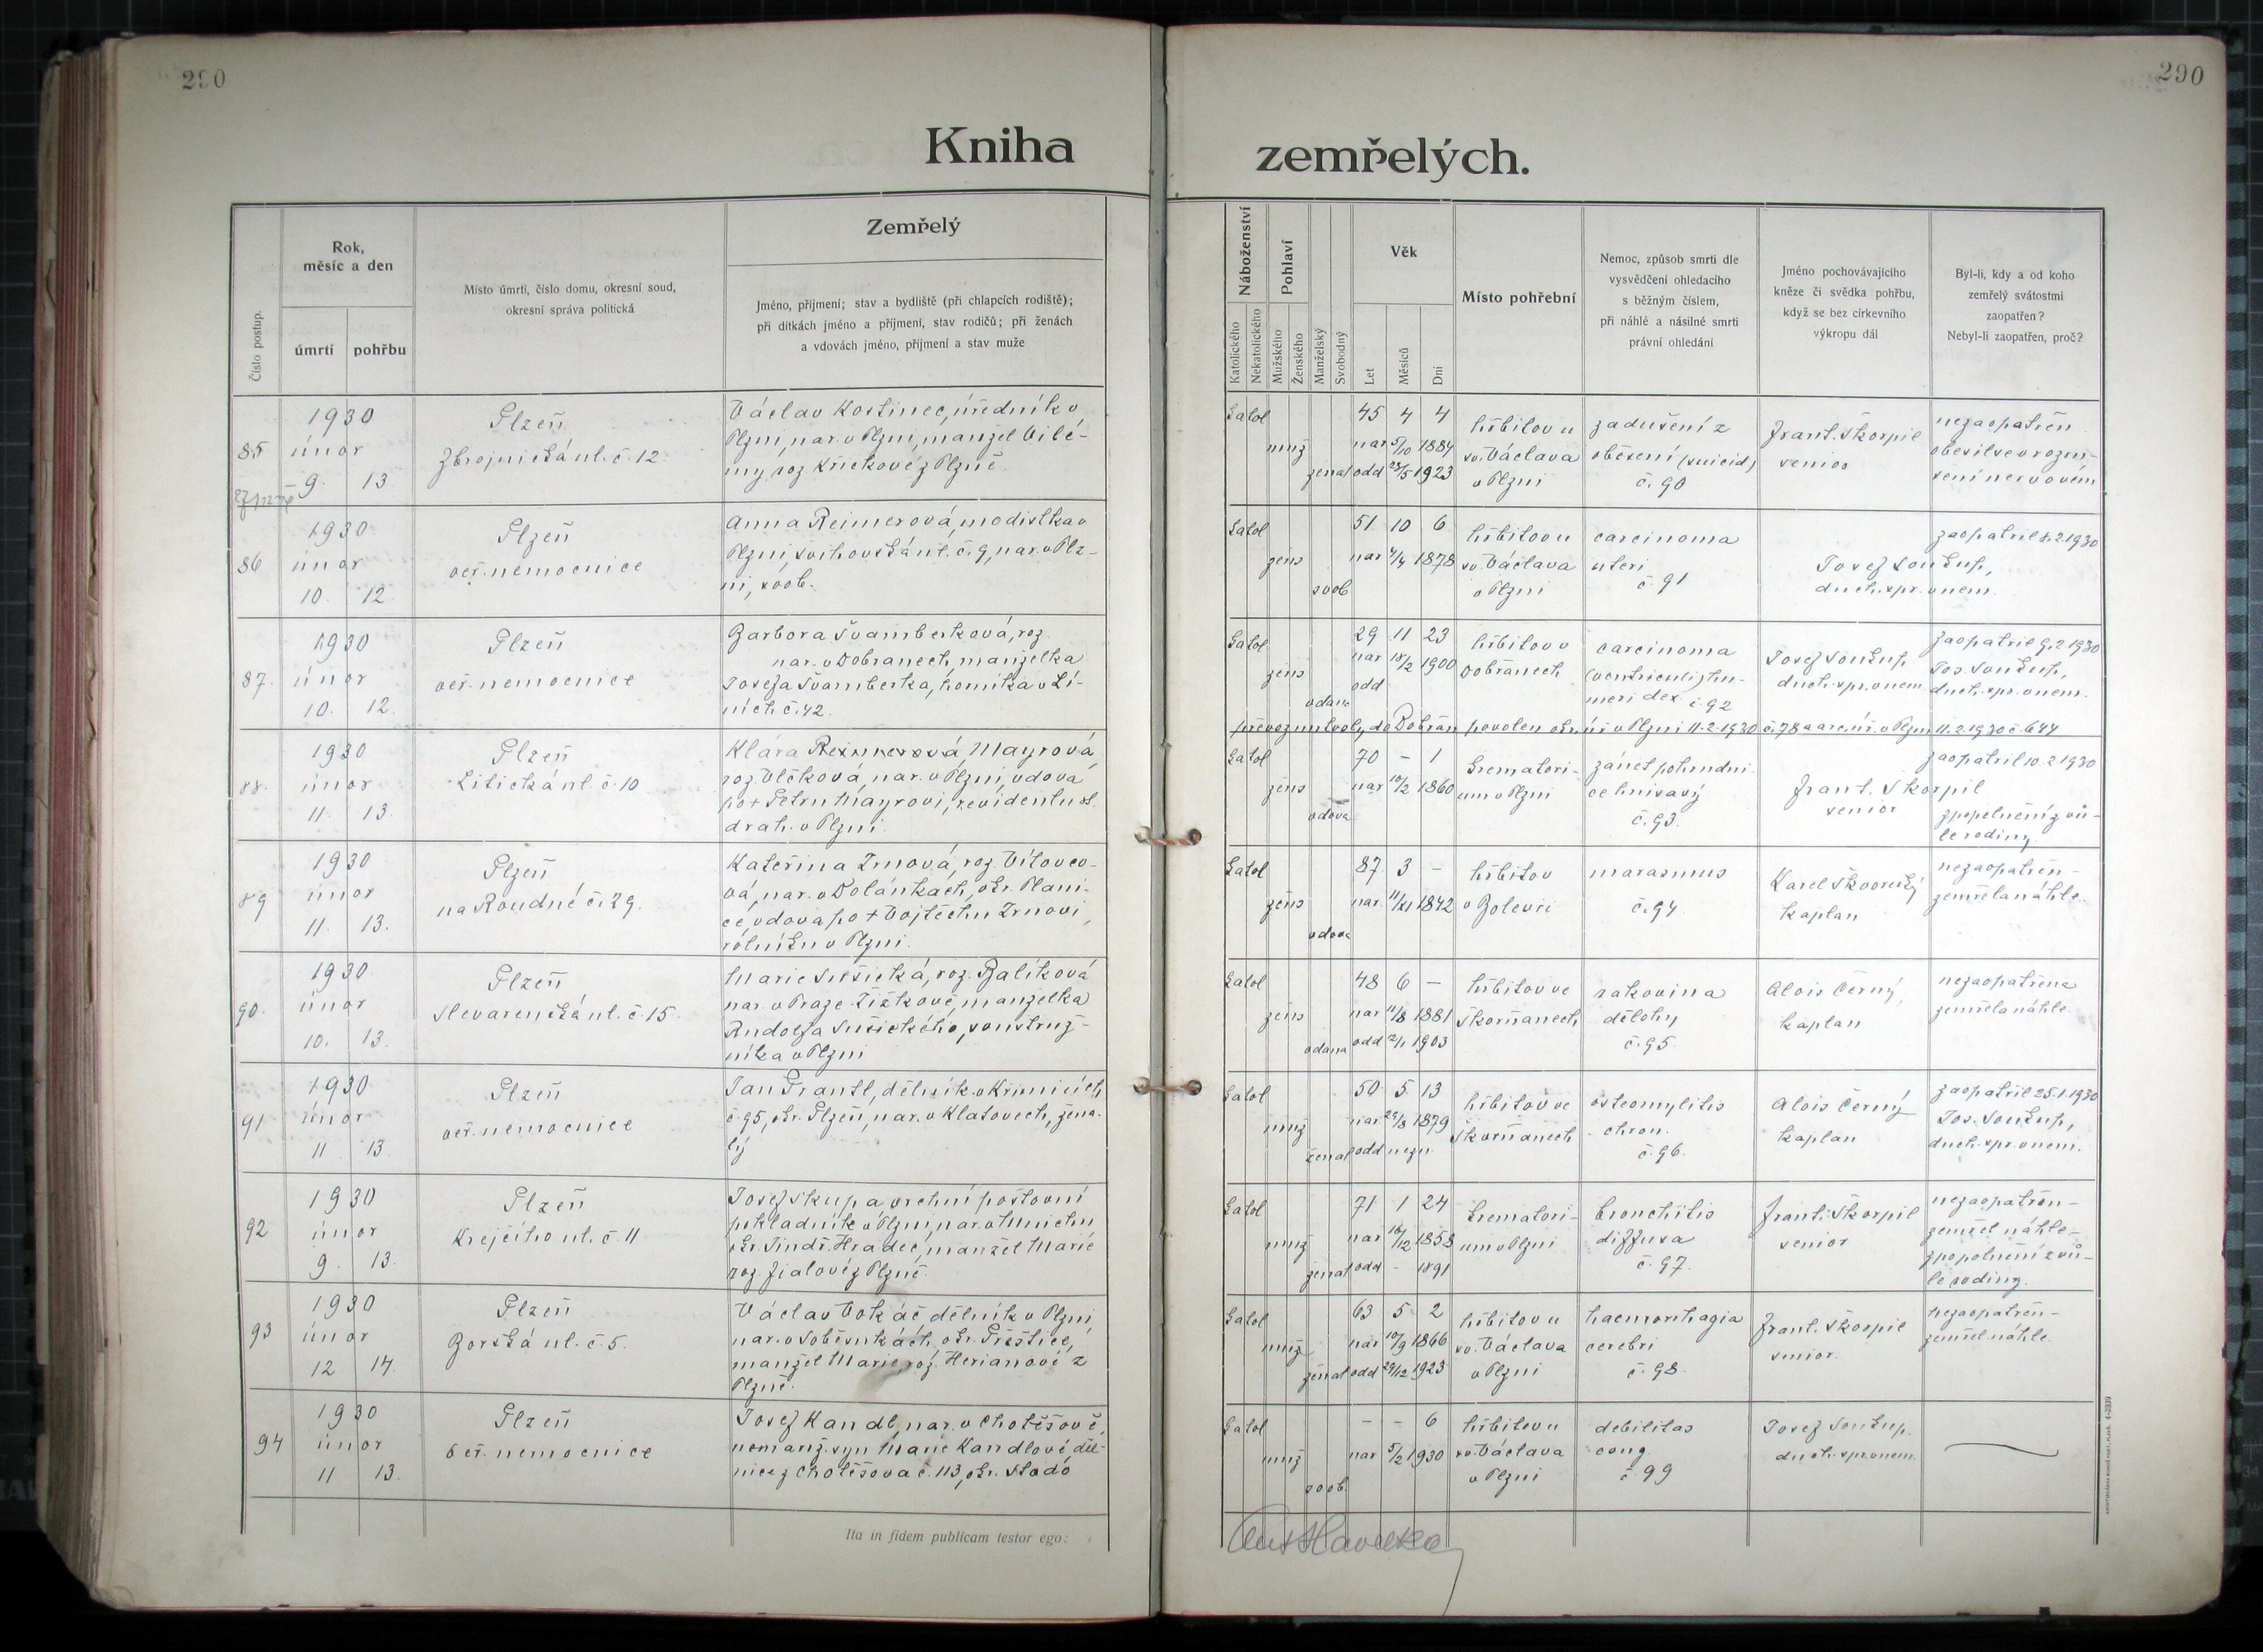 290
290
Kniha
zemřelých.
Číslo postup.
Rok,
měsíc a den
úmrtí
pohřbu
Místo úmrtí, číslo domu, okresní soud,
okresní správa politická
Zemřelý
Jméno, příjmení; stav a bydliště (při chlapcích rodiště);
při dítkách jméno a příjmení, stav rodičů; při ženách
a vdovách jméno, příjmení a stav muže
Náboženství
Katolického
Nekatolického
Pohlaví
Mužského
Ženského
Manželský
Svobodný
Věk
Let
Měsíců
Dní
Místo pohřební
Nemoc, způsob smrti dle
vysvědčení ohledacího
s běžným číslem,
při náhlé a násilné smrti
právní ohledání
Jméno pochovávajícího
kněze či svědka pohřbu,
když se bez církevního
výkropu dál
Byl-li, kdy a od koho
zemřelý svátostmi
zaopatřen?
Nebyl-li zaopatřen, proč?
85
1930
únor
9. 13.
Plzeň
Zbrojnická ul. č. 12.
Václav Kostinec, úředník v
Plzni, nar. v Plzni, manžel Vilé-
my, roz. Křičkové z Plzně.
katol
muž
ženat
45 4 4
nar 5/10 1884
odd 23/5 1923
hřbitov u
sv. Václava
v Plzni
zadušení z
oběšení (suicid)
č. 90
Frant. Škorpil
senior
nezaopatřen
oběsil se v rozru-
šení nervovém
86
1930
únor
10. 12.
Plzeň
veř. nemocnice
Anna Reimerová, modistka v
Plzni, Švihovská ul. č. 9, nar. v Plz-
ni, svob.
katol
žens
svob
51 10 6
nar 4/4 1878
hřbitov u
sv. Václava
v Plzni
carcinoma
uteri
č. 91
Josef Soukup,
duch. spr. v nem.
zaopatřil 8.2.1930
87.
1930
únor
10. 12.
Plzeň
veř. nemocnice
Barbora Švamberková, roz.
nar. v Dobřanech, manželka
Josefa Švamberka, horníka v Lí-
ních č. 42.
katol
žens
vdaná
29 11 23
nar 18/2 1900
odd
hřbitov v
Dobřanech
carcinoma
(ventriculi) hu-
meri dex. č. 92
Josef Soukup
duch. spr. v nem.
zaopatřil 9.2.1930
Jos. Soukup,
duch. spr. v nem.
převoz mrtvoly do Dobřan povolen okr. úř. v Plzni 11.2.1930 č. 78 a arc. úř. v Plzni 11.2.1930 č. 644
88.
1930
únor
11. 13.
Plzeň
Litická ul. č. 10
Klára Reimerová, Mayrová,
roz. Vlčková, nar. v Plzni, vdova
po + Petru Mayrovi, revidentu st.
drah. v Plzni.
katol
žens
vdova
70 – 1
nar 10/2 1860
kremator-
ium v Plzni
zánět pohrudni-
ce hnisavý
č. 93.
Frant. Škorpil
senior
zaopatřil 10.2.1930
zpopelnění z vů-
le rodiny.
89
1930
únor
11. 13.
Plzeň
na Roudné č. 29.
Kateřina Zrnová, roz. Vítovco-
vá, nar. v Dolánkách, okr. Plani-
ce, vdova po + Vojtěchu Zrnovi,
rolníku v Plzni.
katol
žens
vdova
87 3 –
nar. 11/XI 1842
hřbitov
v Bolevci
marasmus
č. 94
Karel Škvorecký
kaplan
nezaopatřen-
zemřela náhle.
90.
1930
únor
10. 13.
Plzeň
Slevarenská ul. č. 15.
Marie Sušická, roz. Balíková
nar. v Praze-Žižkově, manželka
Rudolfa Sušického, soustruž-
níka v Plzni
katol
žens
vdana
48 6 –
nar 11/8 1881
odd 2/1 1903
hřbitov ve
Skvrňanech
rakovina
dělohy
č. 95.
Alois Černý,
kaplan
nezaopatřena
zemřela náhle.
91
1930
únor
11. 13.
Plzeň
veř. nemocnice
Jan Frantl, dělník v Křimicích
č. 95, okr. Plzeň, nar. v Klatovech, žena-
tý
katol
muž
ženat
50 5 13
nar 29/8 1879
odd nezn.
hřbitov ve
Skvrňanech
osteomylitis
chron.
č. 96.
Alois Černý
kaplan
zaopatřil 25.1.1930
Jos. Soukup,
duch. spr. v nem.
92
1930
únor
9. 13.
Plzeň
Krejčího ul. č. 11
Josef Skupa, vrchní poštovní
pokladník v Plzni, nar. v Mnichu
okr. Jindř. Hradec, manžel Marie
roz. Fialové z Plzně.
katol
muž
ženat
71 1 24
nar 16/12 1858
odd – 1891
kremator-
ium v Plzni
bronchitis
diffusa
č. 97.
Frant. Škorpil
senior
nezaopatřen-
zemřel náhle-
zpopelnění z vů-
le rodiny.
93
1930
únor
12 14.
Plzeň
Borská ul. č. 5.
Václav Vokáč dělník v Plzni,
nar. v Soběsukách, okr. Přeštice,
manžel Marie, roz. Herianové z
Plzně.
katol
muž
ženat
63 5 2
nar 10/9 1866
odd 29/12 1923
hřbitov u
sv. Václava
v Plzni
haemorrhagia
cerebri
č. 98
Frant. Škorpil
senior.
nezaopatřen-
zemřel náhle.
94
1930
únor
11 13.
Plzeň
veř. nemocnice
Josef Kandl, nar. v Chotěšově,
nemanž. syn Marie Kandlové děl-
nice z Chotěšova č. 113, okr. Stodo
katol
muž
svob.
– – 6
nar 5/2 1930
hřbitov u
sv. Václava
v Plzni
debilitas
cong.
č. 99
Josef Soukup.
duch. spr. v nem.
Ita in fidem publicam testor ego: